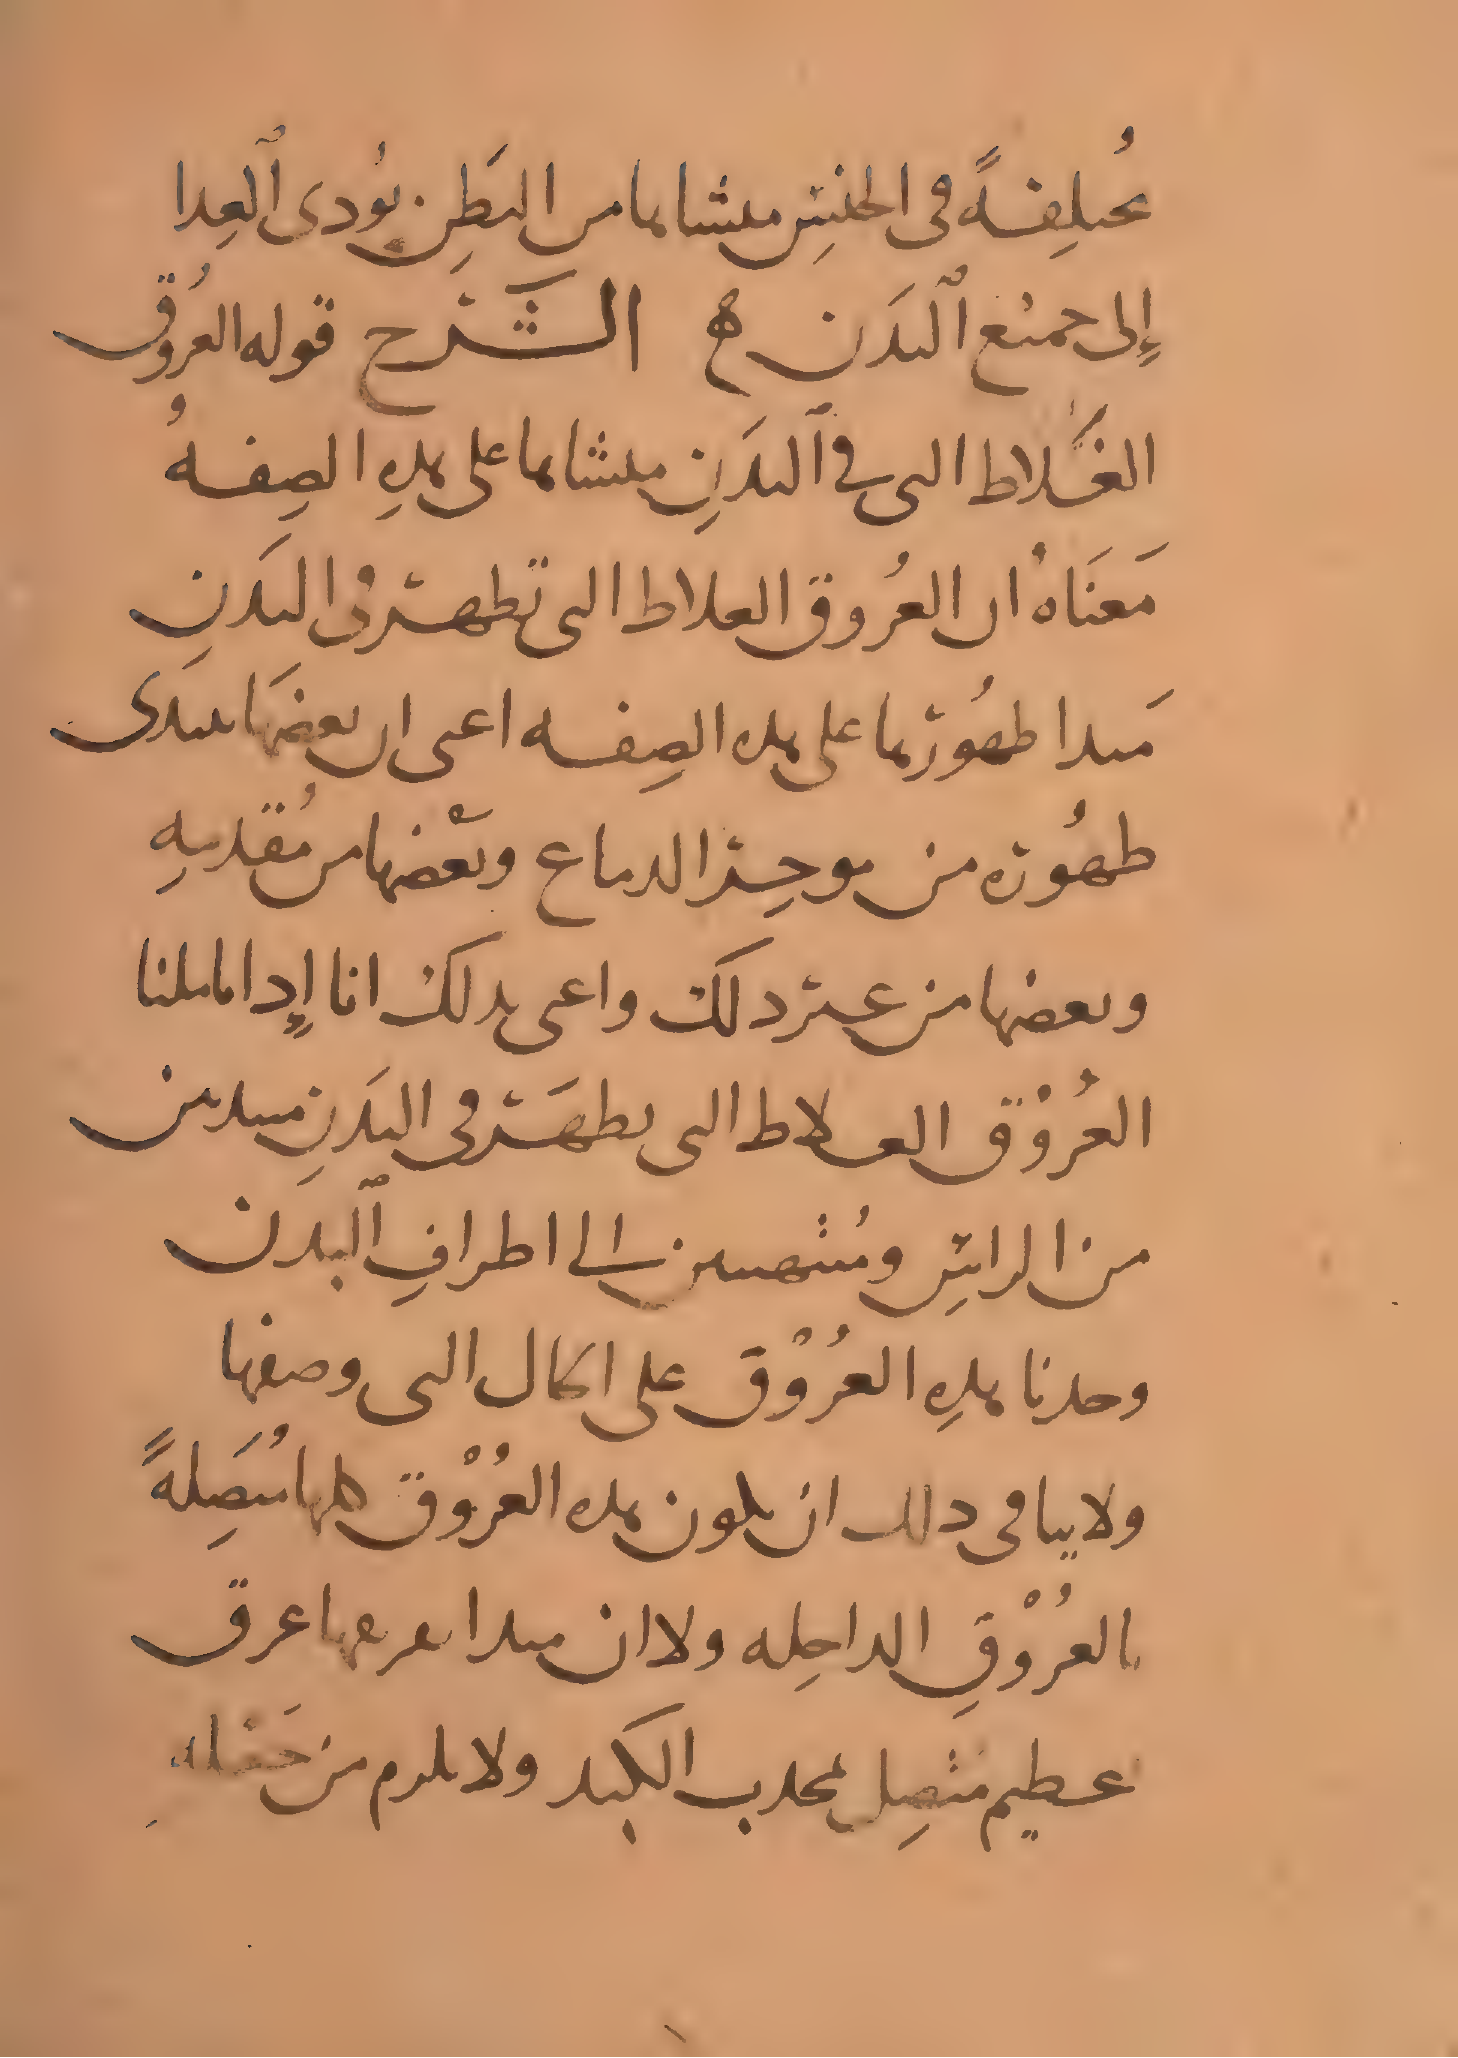 مختلفةً في الجنس منشاها من البَطن يُودي الغِدا
إِلى جميع البَدَن ه الشَّرح قوله العُروق
الغَلاط التي في البَدَنِ منشاها على هدهِ الصِفهُ
مَعنَاهُ ان العُروق الغلاط التي تظهر في البَدَنِ
مَبدا ظهُورها على هده الصِفه اعني ان بعضَها يبتدى
ظهُوره من موخِر الدماغ وبَعْضها من مُقدمِهِ
وبعضها من غير دلك واعني بدلك انا إِدا تاملنا
العُرُوْق الغلاط التي تظهَر في البَدَنِ مبتدين
من الراسِ ومُنتهيين الى اطرافِ البدَن
وجدنا هدهِ العُرُوْق على الحال التي وصفها
ولا ينافي دلك ان يكون هده العُرُوْق كلها مُتصَلِةً
بالعُرُوْقِ الداخِله ولا ان مبدا تفرعها عرق
عظيم متصِل بمحدب الكبد ولا يلزم من جَعْله